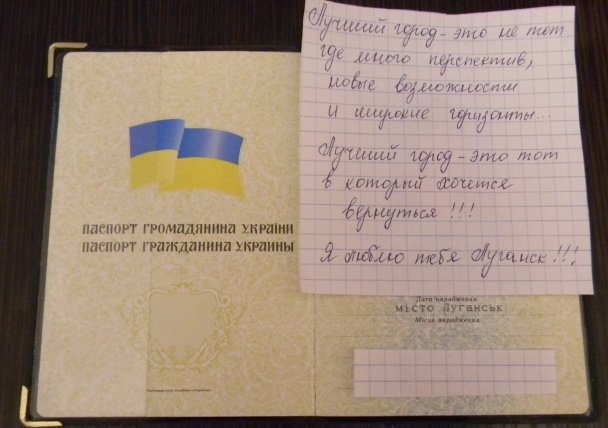 ПАСПОРТ ГРОМАДЯНИНА УКРАЇНИ
ПАСПОРТ ГРАЖДАНИНА УКРАИНЫ
Лучший город - это не тот
где много перспектив,
новые возможности
и широкие горизонты...
Лучший город - это тот
в который хочется
вернуться !!!
Я люблю тебя Луганск !!!
Дата народження
місто Луганськ
Місце народження